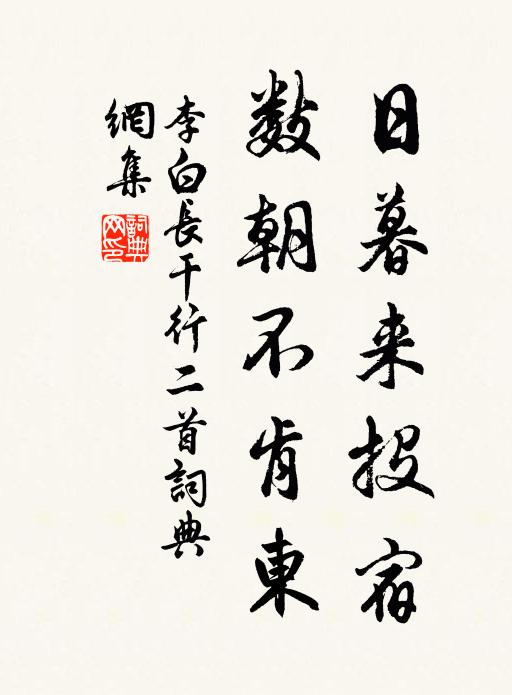 日暮来投宿
數朝不肯東
李白長干行二首詞典
網集
詞典網印